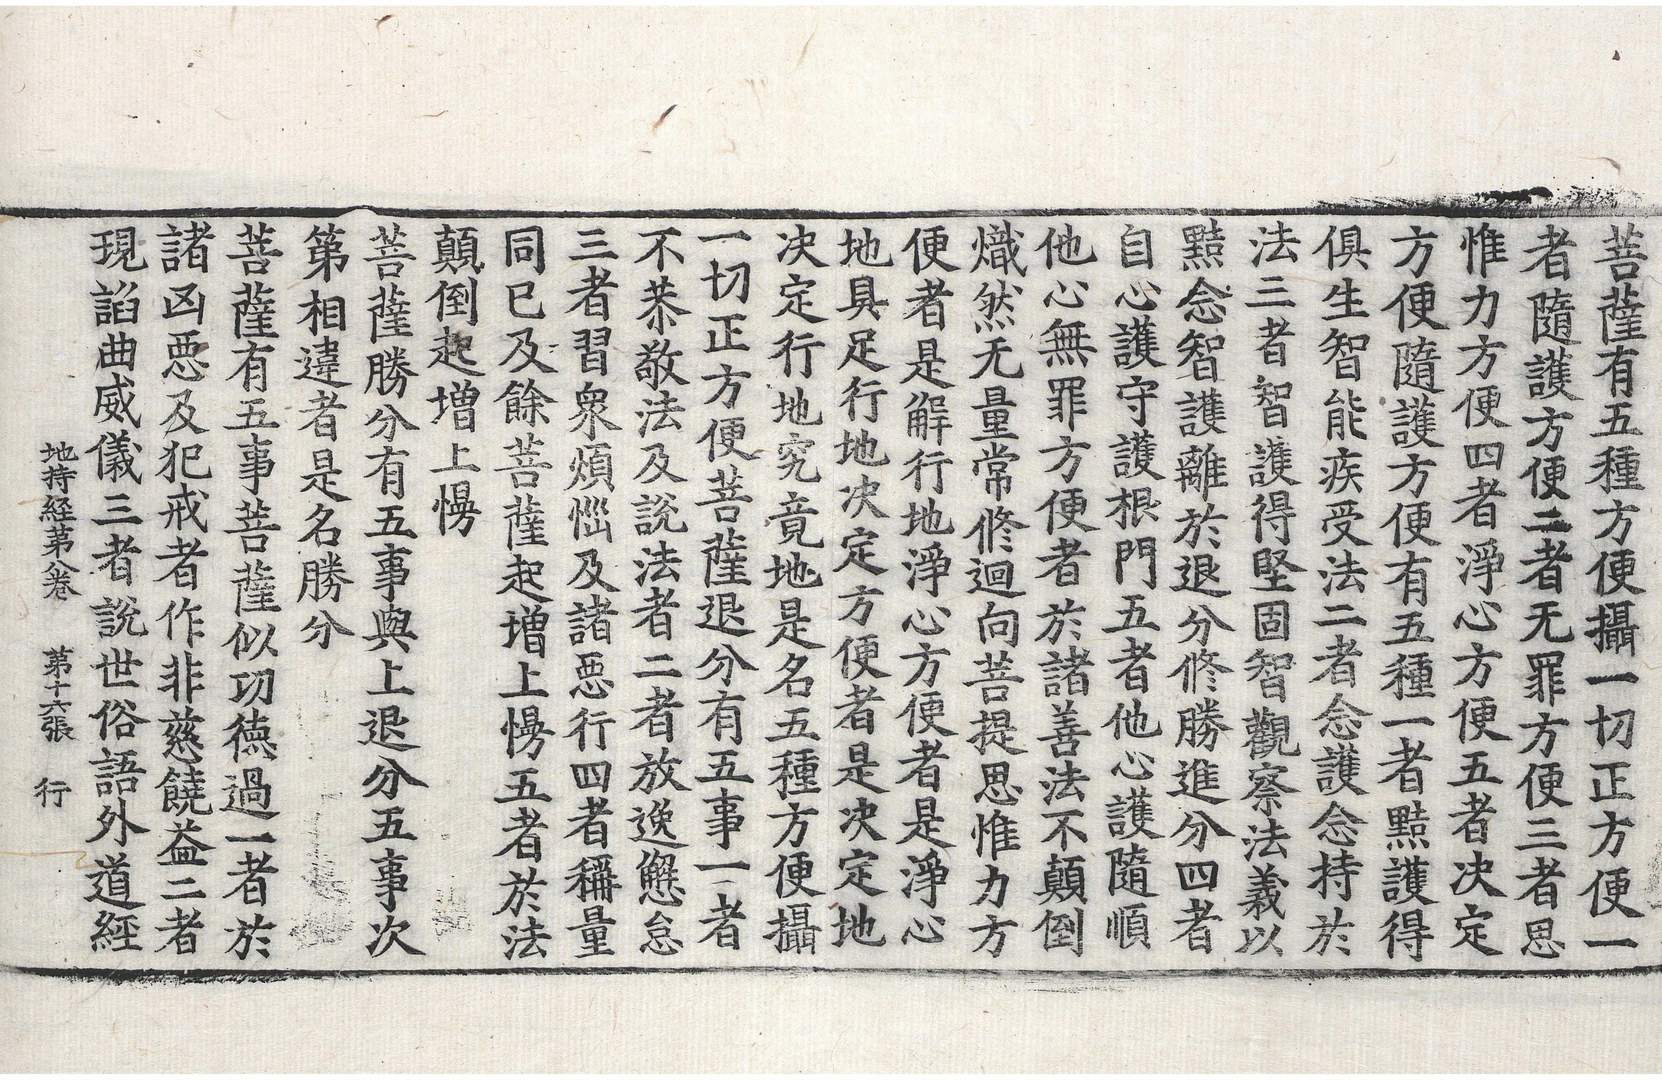 菩薩有五種方便攝一切正方便一
者隨護方便二者无罪方便三者思
惟力方便四者淨心方便五者决定
方便隨護方便有五種一者黠護得
俱生智能疾受法二者念護念持於
法三者智護得堅固智觀察法義以
黠念智護離於退分修勝進分四者
自心護守護根門五者他心護隨順
他心無罪方便者於諸善法不顛倒
熾然无量常修迴向菩提思惟力方
便者是解行地淨心方便者是淨心
地具足行地决定方便者是决定地
决定行地究竟地是名五種方便攝
一切正方便菩薩退分有五事一者
不恭敬法及說法者二者放逸懈怠
三者習衆煩惱及諸惡行四者稱量
同已及餘菩薩起增上慢五者於法
顛倒起增上慢
菩薩勝分有五事與上退分五事次
第相違者是名勝分
菩薩有五事菩薩似功德過一者於
諸凶惡及犯戒者作非慈饒益二者
現諂曲威儀三者說世俗語外道經
地持経苐八卷　苐十六張　行